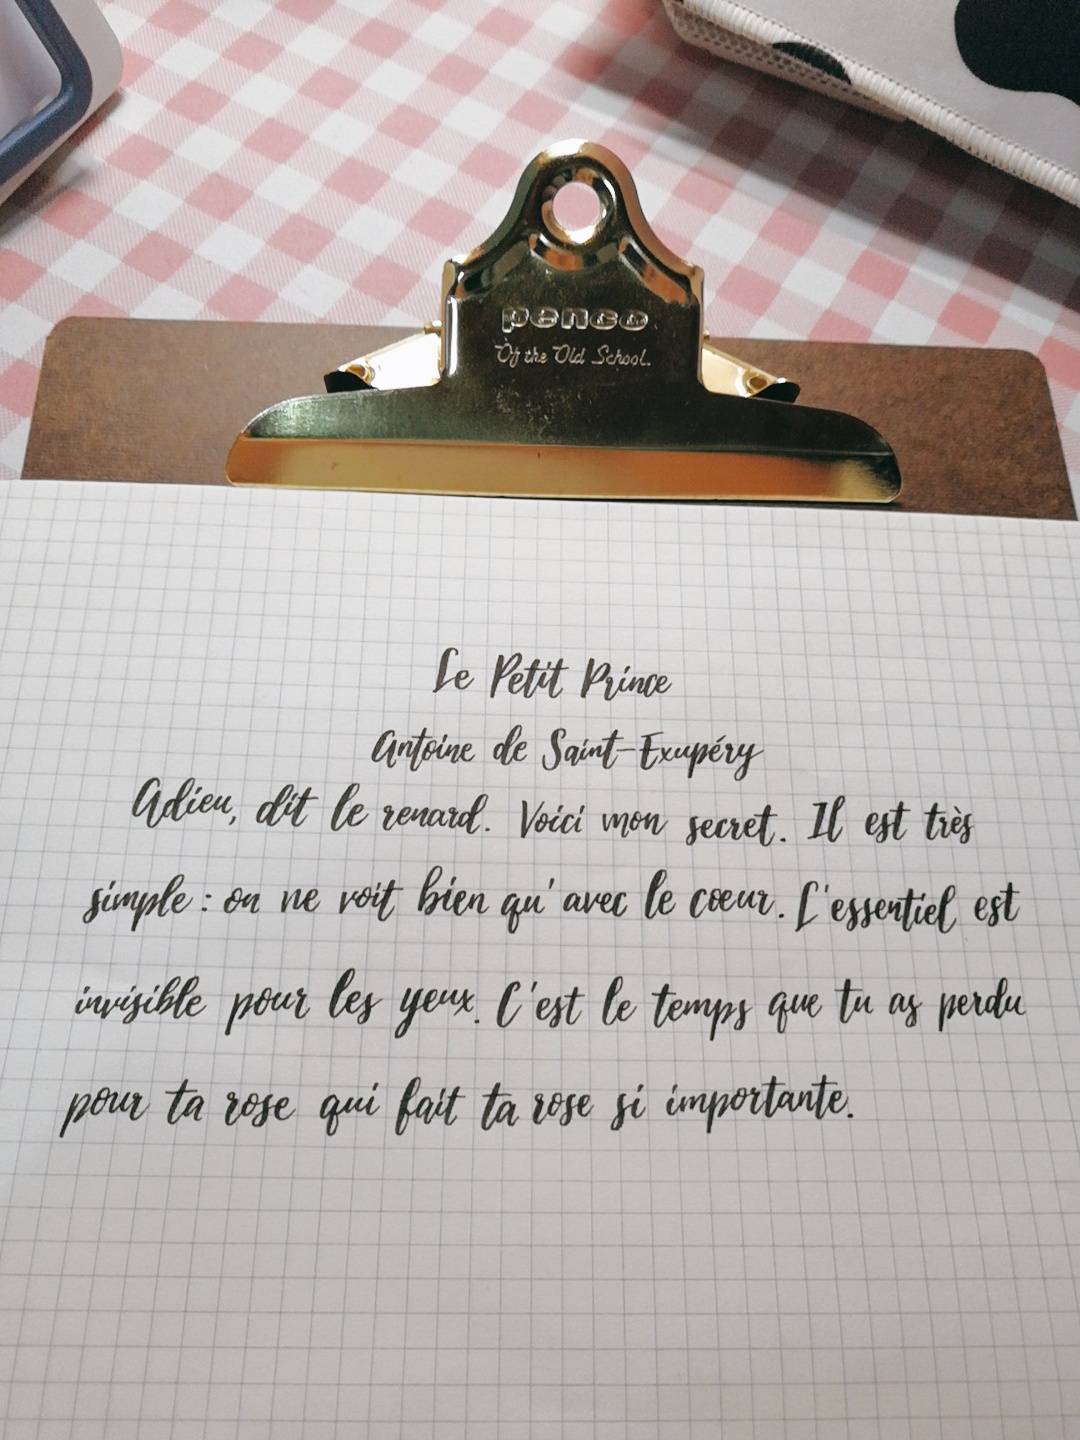 penco
Of the Old School.
Le Petit Prince
Antoine de Saint-Exupéry
Adieu, dit le renard. Voici mon secret. Il est très
simple : on ne voit bien qu'avec le cœur. L'essentiel est
invisible pour les yeux. C'est le temps que tu as perdu
pour ta rose qui fait ta rose si importante.